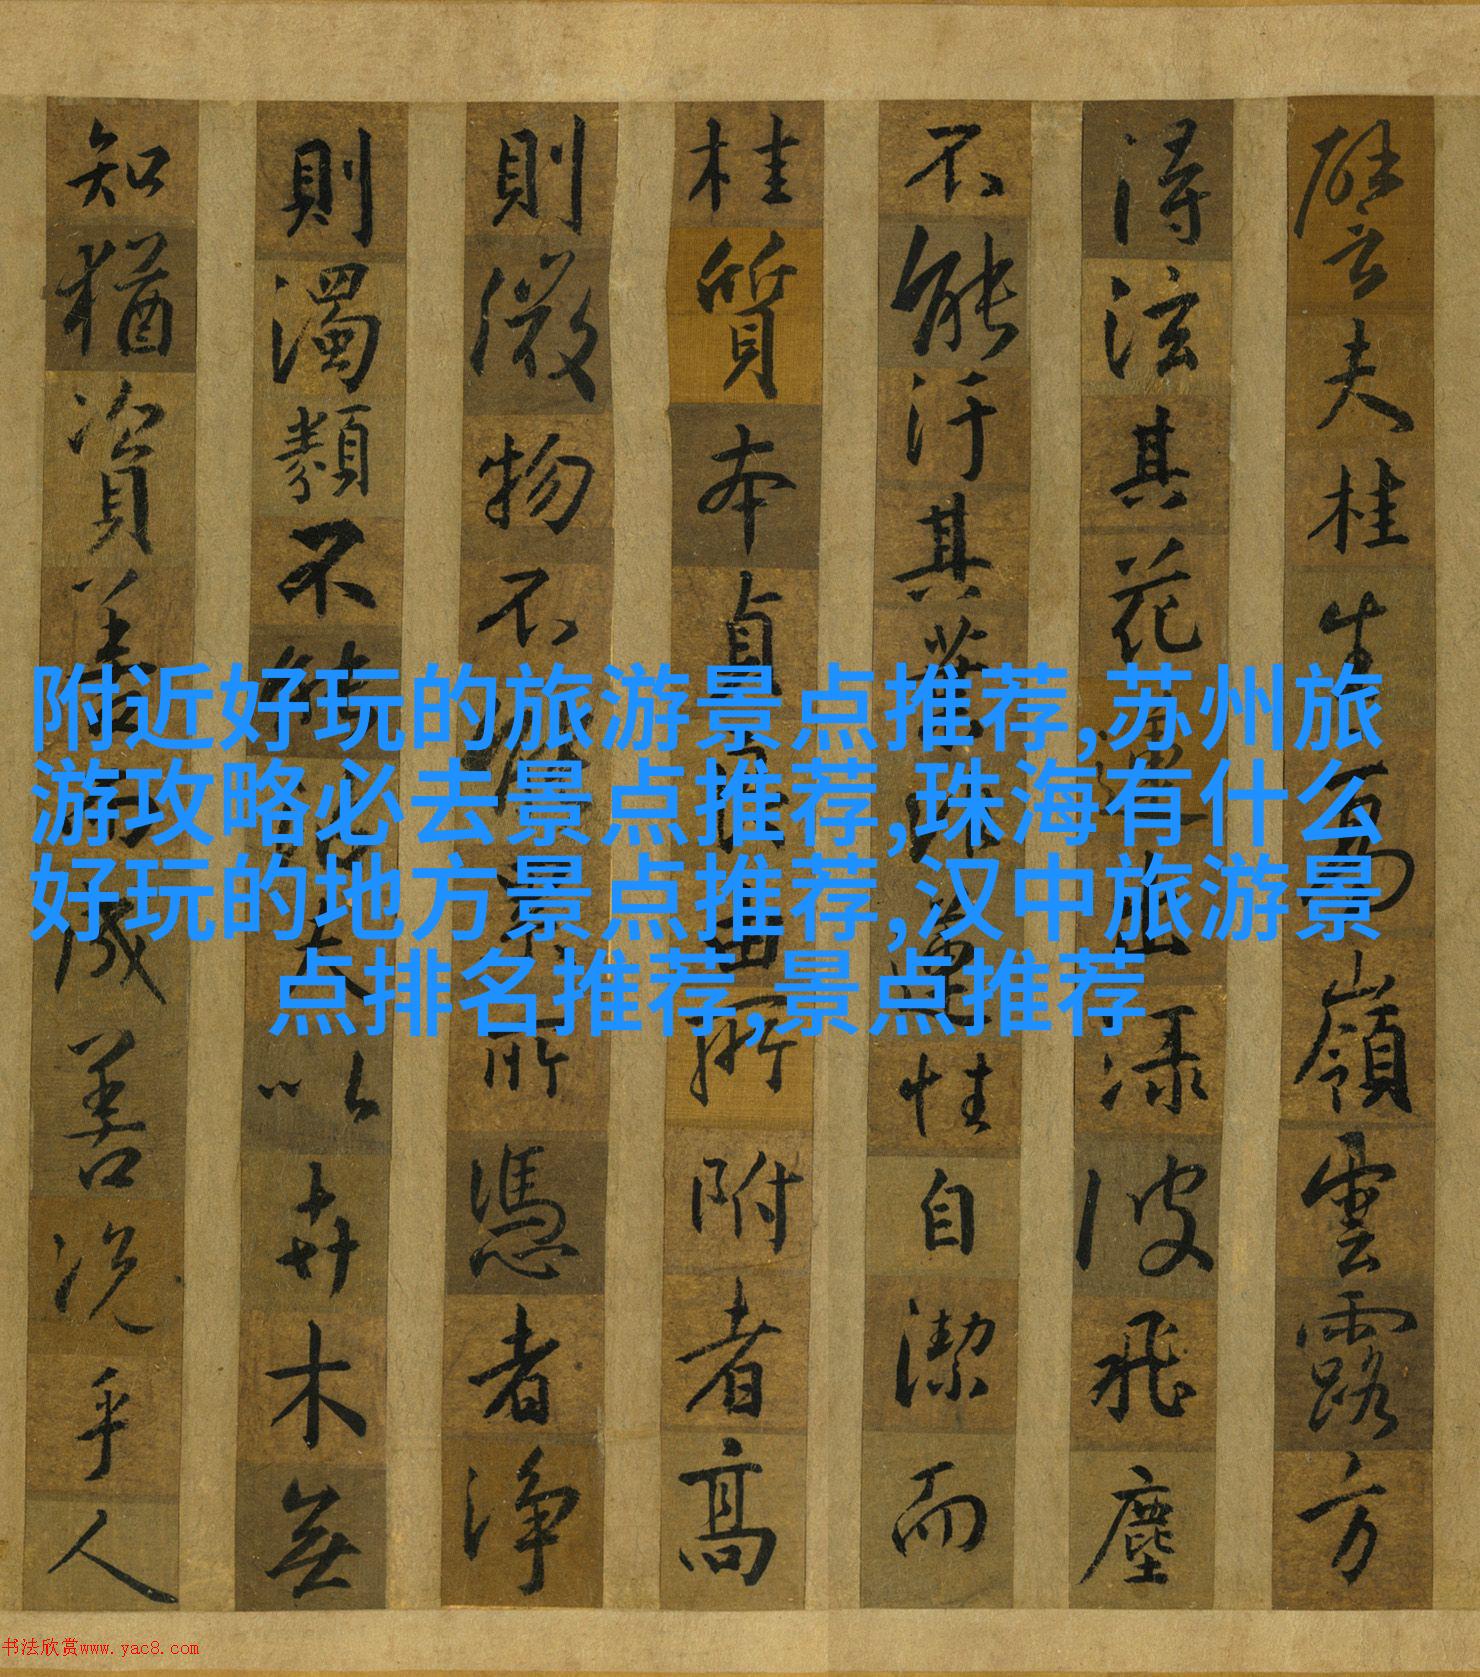 譬夫桂生高嶺雲露方
得泫其花蓮出淥波飛塵
不能汙其葉非蓮性自潔而
桂質本貞良由所附者高
則微物不能累所憑者淨
則濁類不能沾夫以卉木無
知猶資善而成善況乎人
附近好玩的旅游景点推荐,苏州旅
游攻略必去景点推荐,珠海有什么
好玩的地方景点推荐,汉中旅游景
点排名推荐,景点推荐
书法欣赏www.yac8.com